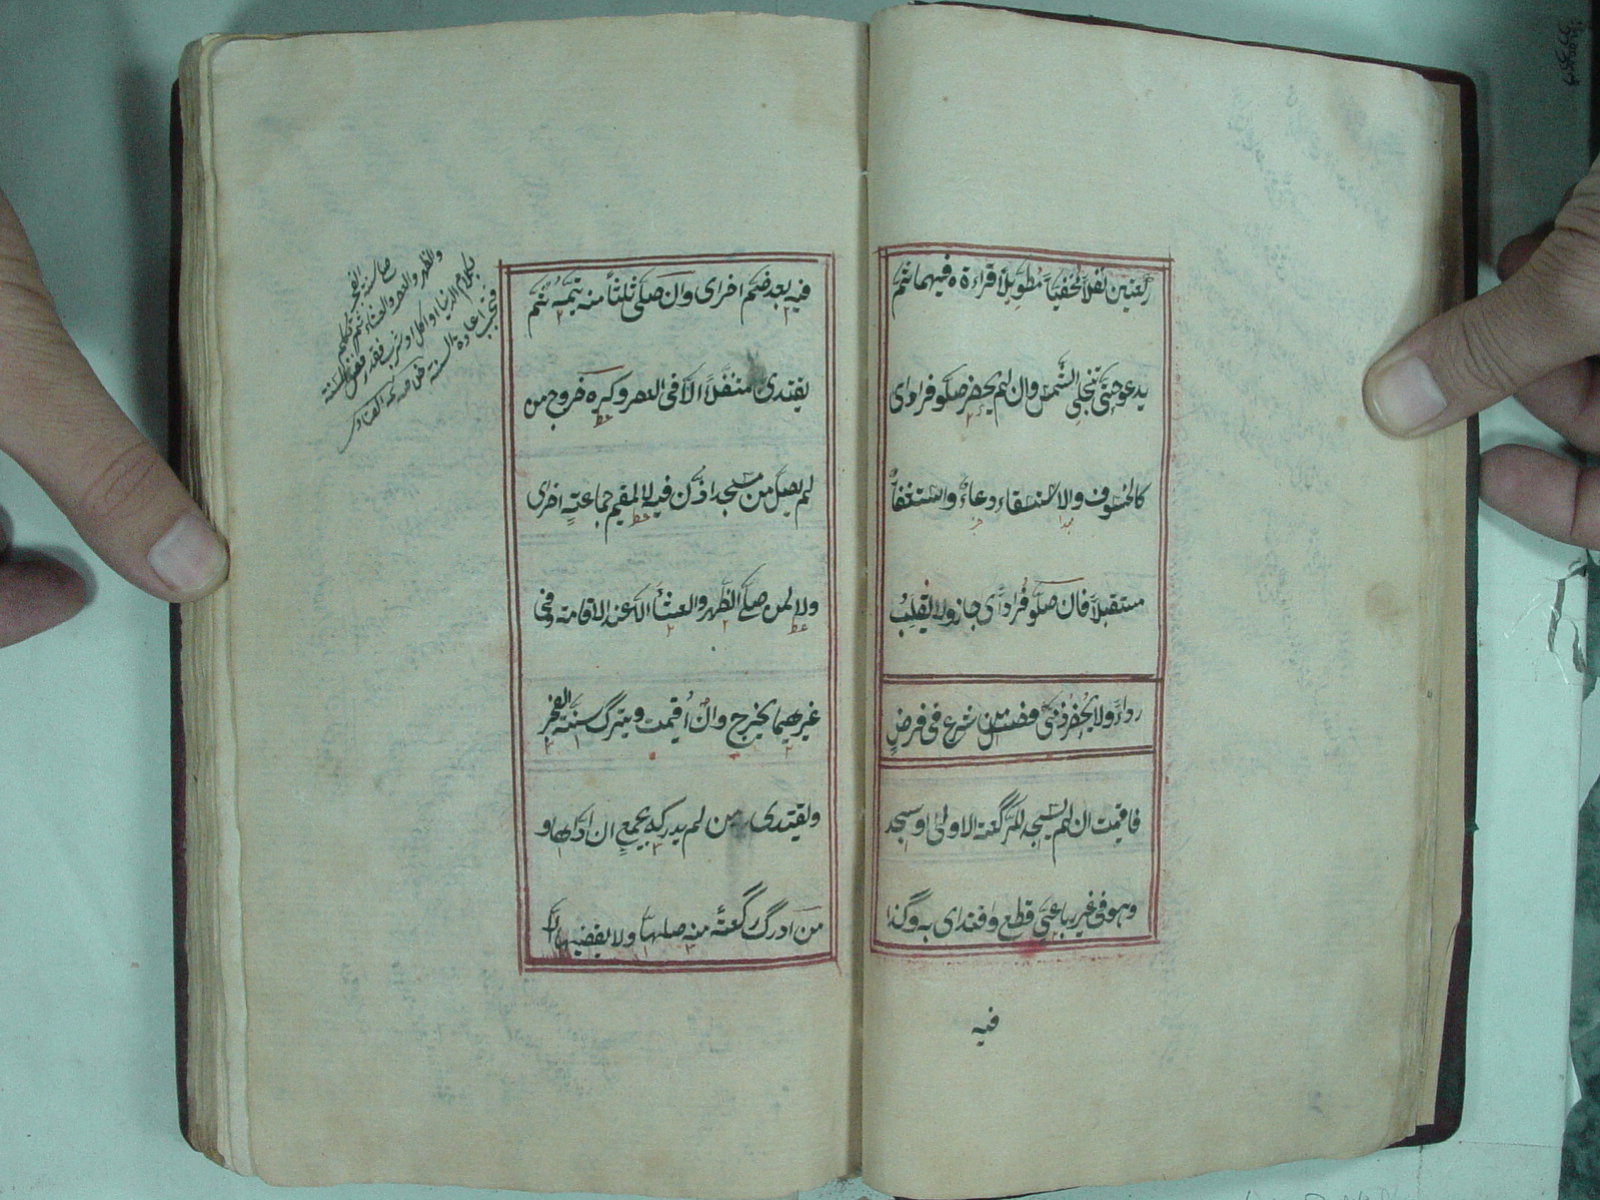 ركعتين نفلا مخفيا مطولا قراءة فيهما ثم
يدعو حتى تنجلي الشمس وان لم يحضر صلوا فرادى
كالخسوف والاستسقاء دعاء واستغفار
مستقبلا فان صلوا فرادى جاز ولا يقلب
رداء ولا يحضر ذمي فصل من شرع في فرض
فاقمت ان لم يسجد للركعة الاولى او سجد
وهو في غير رباعي قطع واقتدى به وكذا
فيه
فيه بعد ضم اخرى وان صلى ثلثا منه يتمه ثم
يقتدى متنفلا الا في العصر وكره خروج من
لم يصل من مسجد اذن فيه لا لمقيم جماعة اخرى
ولا لمن صلى الظهر والعشاء الا عند الاقامة وفي
غيرهما يخرج وان اقيمت ويترك سنة الفجر
ويقتدى من لم يدركه بجمع ان اداها و
من ادرك ركعة منه صلاها ولا يقضيها الا
صلى سنة الفجر
والظهر والعصر والعشاء ثم تكلم
بكلام الدنيا او اكل او شرب فقد السنة
فتجب اعادة السنة الفتاوى